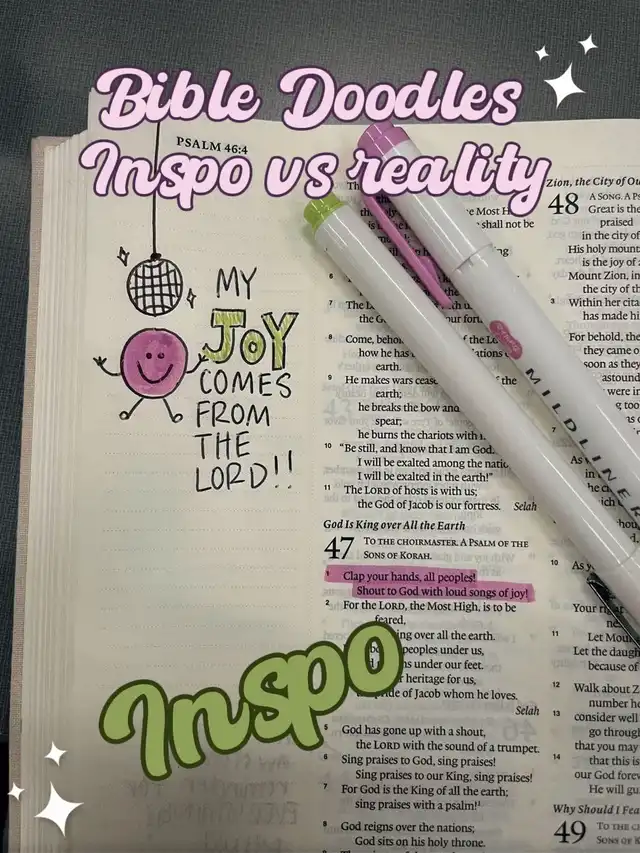 Bible Doodles
Inspo vs reality
PSALM 46:4
MY
JOY
COMES
FROM
THE
LORD!!
Inspo
Th
the
e Most H
shall not be
6
7 The L
the G
our fort
8 Come, behol
of the Lo
how he has
lations
earth.
9 He makes wars cease
of the
earth;
he breaks the bow and
spear;
he burns the chariots with
10 “Be still, and know that I am God.
I will be exalted among the natio
I will be exalted in the earth!”
11 The LORD of hosts is with us;
the God of Jacob is our fortress. Selah
God Is King over All the Earth
47 TO THE CHOIRMASTER. A PSALM OF THE
SONS OF KORAH.
1 Clap your hands, all peoples!
Shout to God with loud songs of joy!
2 For the LORD, the Most High, is to be
feared,
ing over all the earth.
peoples under us,
ns under our feet.
heritage for us,
ide of Jacob whom he loves.
Selah
5 God has gone up with a shout,
the LORD with the sound of a trumpet.
6 Sing praises to God, sing praises!
Sing praises to our King, sing praises!
7 For God is the King of all the earth;
sing praises with a psalm!
8 God reigns over the nations;
God sits on his holy throne.
MILDLINER
Zion, the City of Ou
48 A SONG. A PS
Great is the
praised
in the city of
His holy mount
is the joy of a
Mount Zion, in
the city of th
3 Within her cita
has made hi
For behold, t
they came o
soon as they
astound
were in
too
7
As
in
he c
hich
10 As y
Your r
ne
11 Let Mou
Let the daugh
because of
12 Walk about Z
number he
13 consider well
go throug
that you may
14 that this is
our God forev
He will gu
Why Should I Fea
49 TO THE CH
SONS OF K